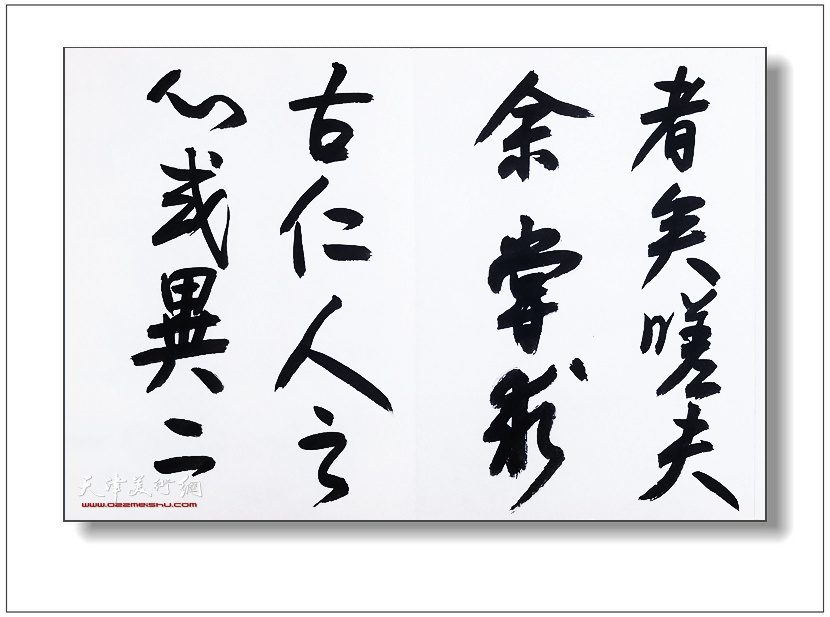 者矣嗟夫
余嘗求
古仁人之
心或異二
天津美術網
www.022meishu.com